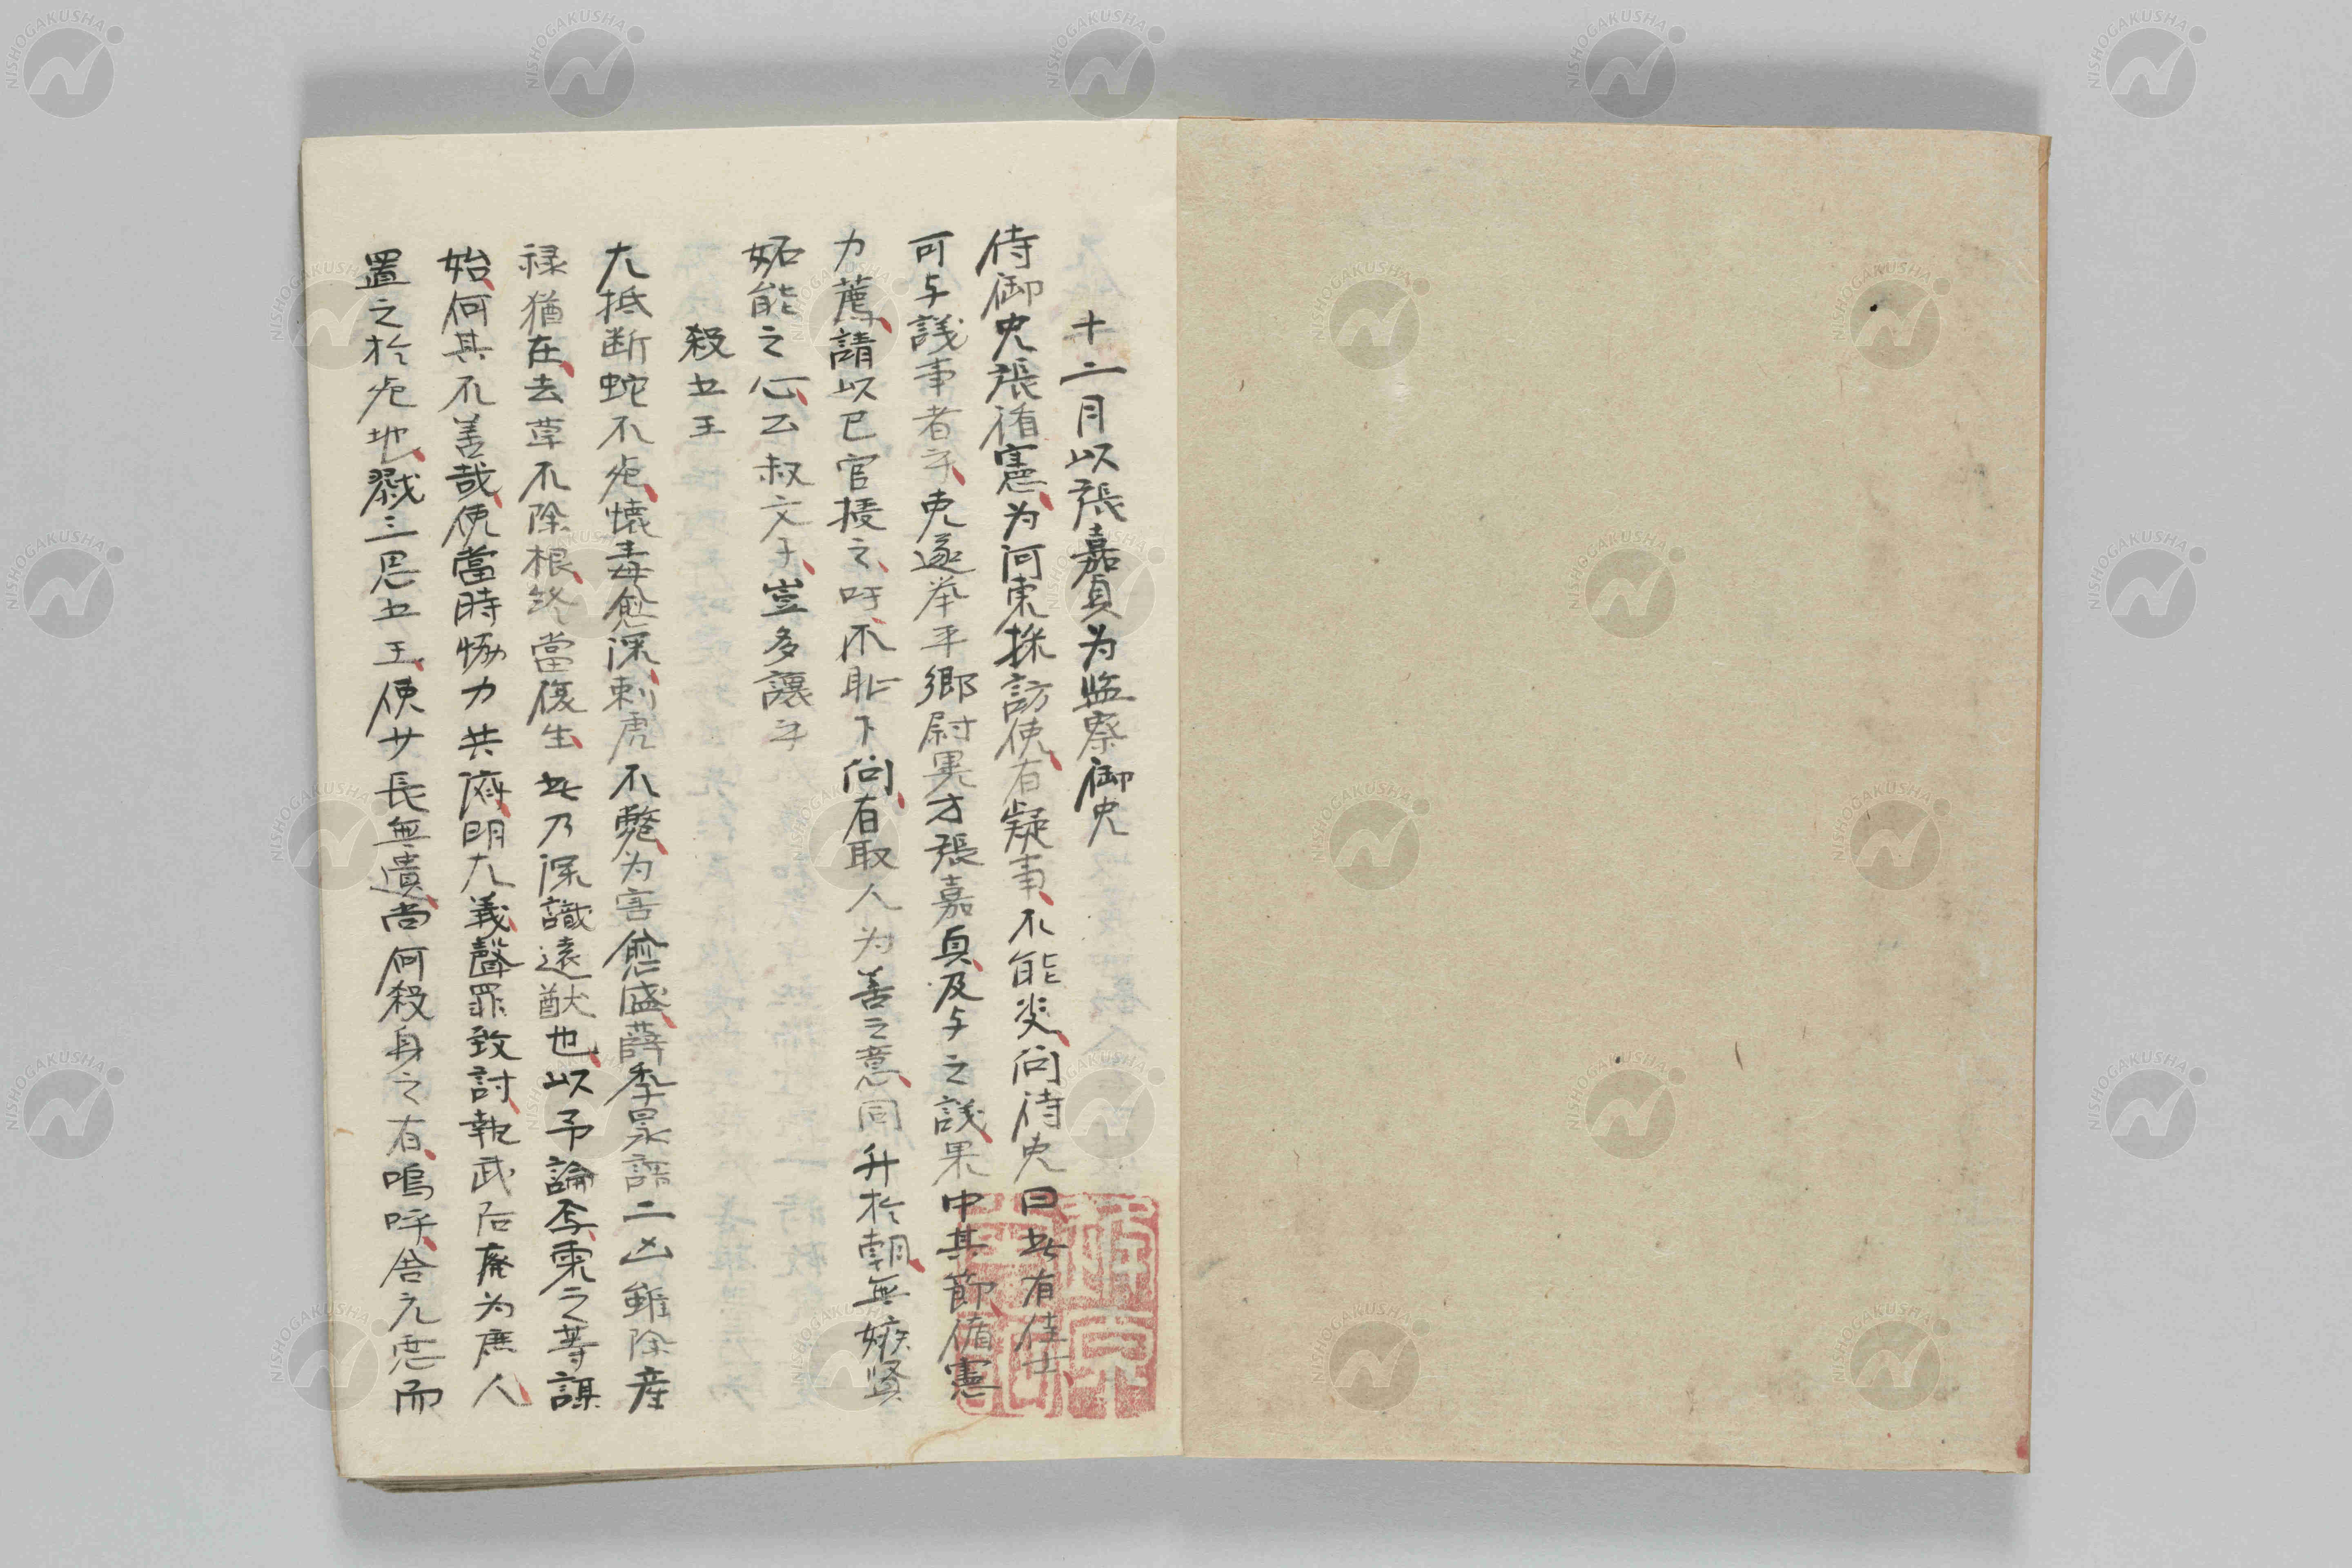 十二月以張嘉貞为監察御史
侍御史張循憲为河東採訪使有疑事不能決问侍史曰此有佳士
可与議事者乎吏遂举平鄉尉異才張嘉貞及与之議果中其節循憲
力薦請以己官授之吁不恥下问有取人为善之意同升於朝無嫉贤
妬能之心公叔文子豈多讓乎
殺五王
大抵断蛇不死懐毒愈深刺虎不斃为害愈盛薛季昶謂二凶雖除産
禄猶在去草不除根終當復生此乃深識遠猷也以予論丕柬之等謀
始何其不善哉使當時恊力共济明大義聲罪致討執武后廃为庶人
置之於死地戮三思五王使廿長無遺尚何殺身之有嗚呼舍元悪而
NISHOGAKUSHA